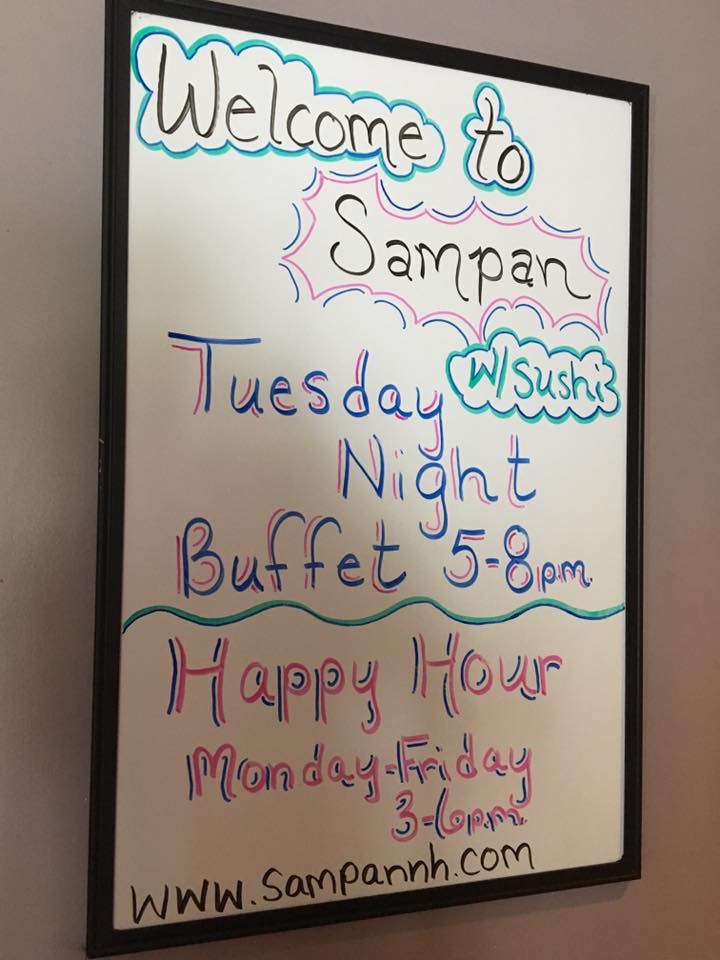 Welcome to
Sampan
w/sushi
Tuesday
Night
Buffet 5-8p.m.
Happy Hour
Monday-Friday
3-6p.m.
www.sampannh.com